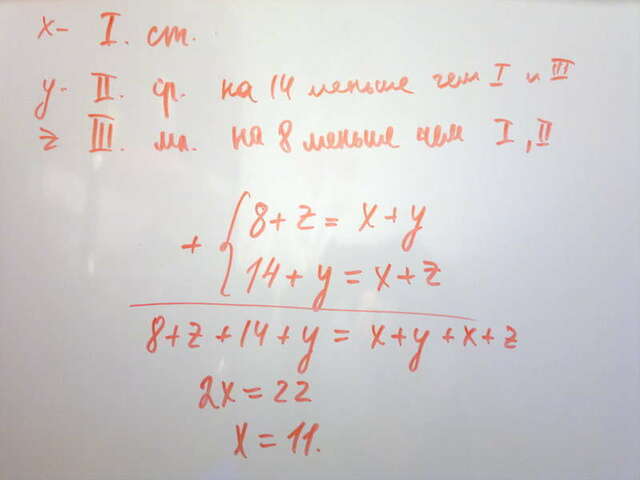 x- I. ст.
y- II. ср. на 14 меньше чем I и III
z III. мл. на 8 меньше чем I, II
+ { 8+z = x+y
14+y = x+z
8+z+14+y = x+y+x+z
2x=22
x=11.